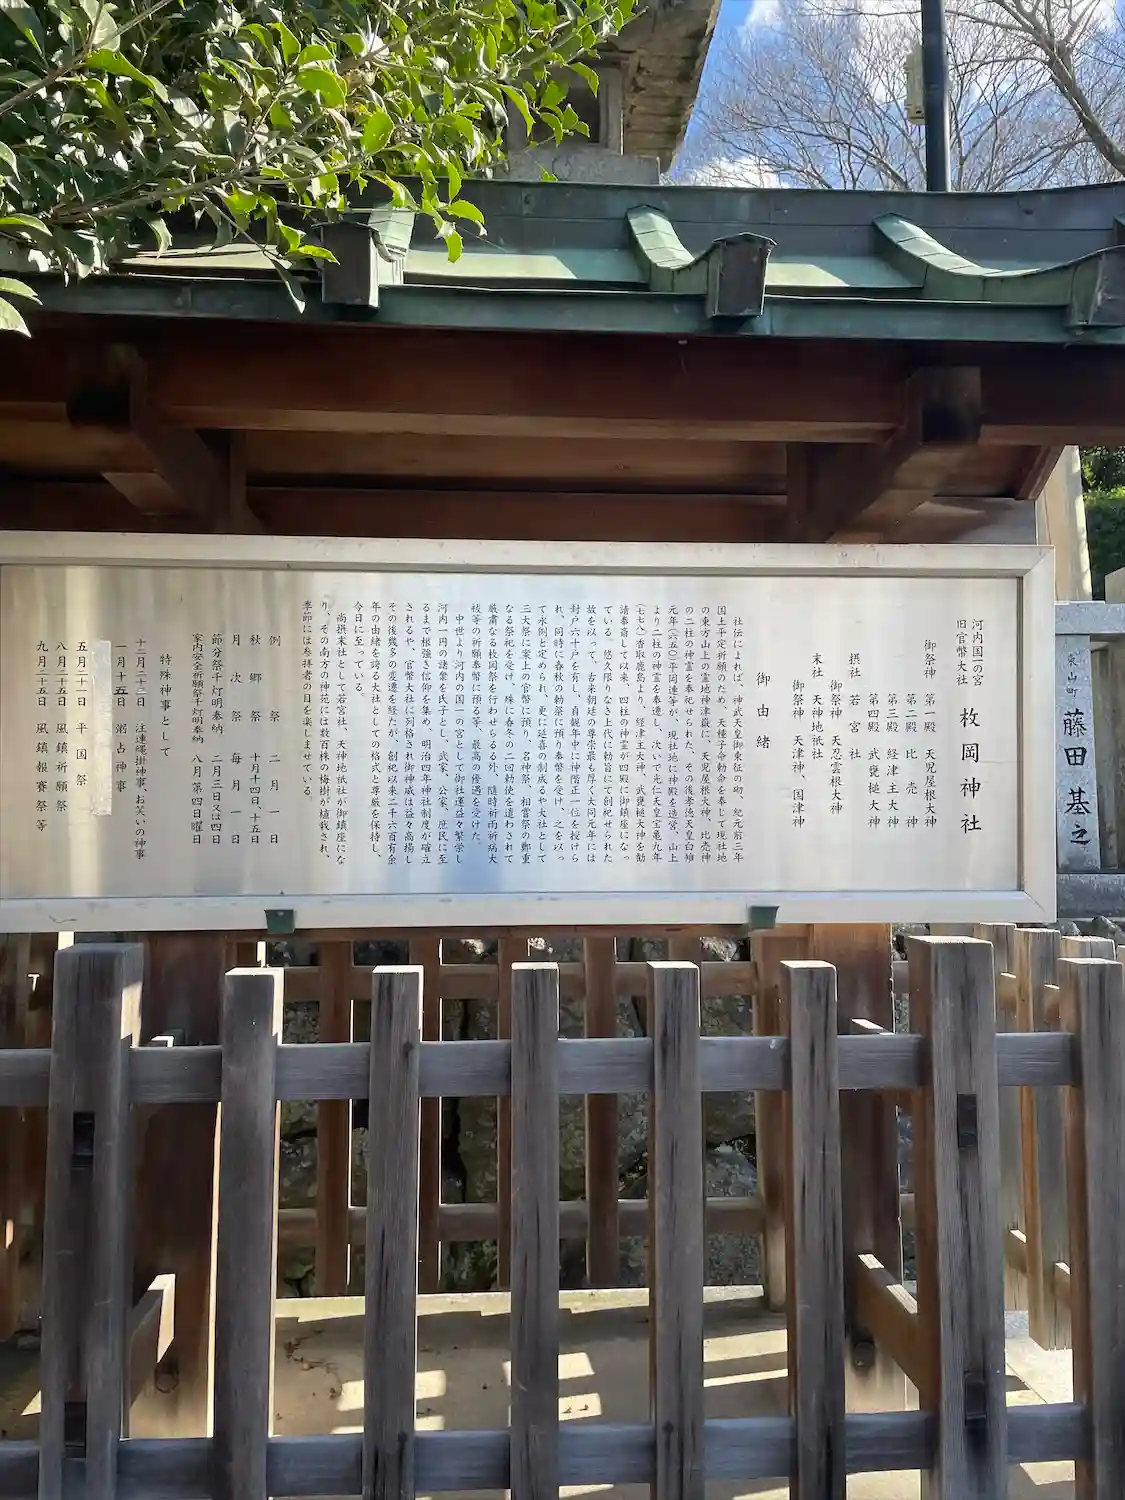 河内国一の宮
旧官幣大社
枚岡神社
御祭神 第一殿 天児屋根大神
第二殿 比売神
第三殿 経津主大神
第四殿 武甕槌大神
摂社 若宮社
御祭神 天忍雲根大神
末社 天神地祇社
御祭神 天津神、国津神
御由緒
社伝によれば、神武天皇御東征の砌、紀元前三年
国土平定祈願のため、天種子命勅命を奉じて現社地
の東方山上の霊地神津嶽に、天児屋根大神、比売神
の二柱の神霊を奉祀せられた、その後孝徳天皇白雉
元年(六五〇)平岡連等が、現社地に神殿を造営、山上
より二柱の神霊を奉遷し、次いで光仁天皇宝亀九年
(七七八)香取鹿島より、経津主大神、武甕槌大神を勧
請奉斎して以来、四柱の神霊が四殿に御鎮座になっ
ている。悠久限りなき上代に勅旨にて創祀せられた
故を以って、古来朝廷の尊崇最も厚く大同元年には
封戸六十戸を有し、貞観年中に神階正一位を授けら
れ、同時に春秋の勅祭に預り奉幣を受け、之を以っ
て永例と定められ、更に延喜の制成るや大社として
三大祭に案上の官幣に預り、名神祭、相嘗祭の鄭重
なる祭祀を受け、殊に春冬の二回勅使を遣わされて
厳粛なる枚岡祭を行わせらるる外、随時祈雨祈病大
祓等の祈願奉幣に預る等、最高の優遇を受けた。
中世より河内の国一の宮とて御社運益々繁栄し
河内一円の諸衆を氏子とし、武家、公家、庶民に至
るまで根強き信仰を集め、明治四年神社制度が確立
されるや、官幣大社に列格され御神威は益々高揚し
その後幾多の変遷を経たが、創祀以来二千六百有余
年の由緒を誇る大社としての格式と尊厳を保持し、
今日に至っている。
尚摂末社として若宮社、天神地祇社が御鎮座にな
り、その南方の神苑には数百株の梅樹が植栽され、
季節には参拝者の目を楽しませている。
例祭 二月一日
秋郷祭 十月十四日、十五日
月次祭 毎月一日
節分祭千灯明奉納 二月三日又は四日
家内安全祈願祭千灯明奉納 八月第四日曜日
特殊神事として
十二月二十三日 注連縄掛神事、お笑いの神事
一月十五日 粥占神事
五月二十一日 平国祭
八月二十五日 風鎮祈願祭
九月二十五日 風鎮報賽祭 等
東山町
藤田基之